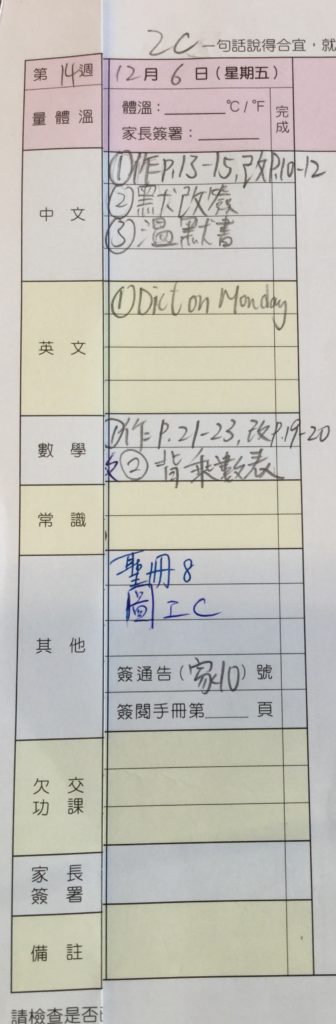 2C 一句話說得合宜，就
第14週 12月6日(星期五)
量體溫 體溫：______°C/°F 完成
家長簽署：______
中文 ①作P.13-15,改P.10-12
②默改簽
③溫默書
英文 ①Dict on Monday
數學 ①作P.21-23,改P.19-20
②背乘數表
常識
其他 聖冊8
圖工C
簽通告(家10)號
簽閱手冊第____頁
欠交功課
家長簽署
備註
請檢查是否